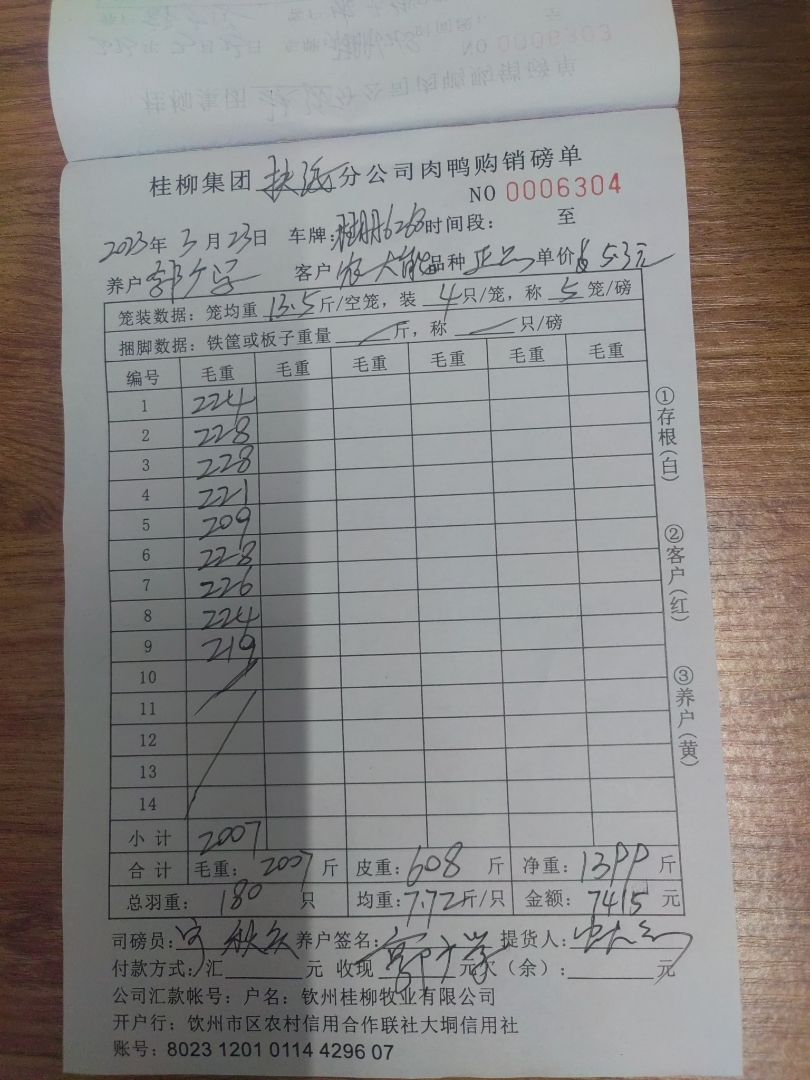 NO 0006303
桂柳集团 分公司肉鸭购销磅单
NO 0006304
2023年3月23日 车牌: 6263时间段: 至
养户 客户 农大 品种 正品 单价 5.3元
笼装数据: 笼均重 13.5斤/空笼, 装 4只/笼, 称 5笼/磅
捆脚数据: 铁筐或板子重量 斤, 称 只/磅
编号 毛重 毛重 毛重 毛重 毛重 毛重
1 224
2 228
3 228
4 221
5 209
6 228
7 226
8 224
9 219
10
11
12
13
14
小计 2007
合计 毛重: 2007斤 皮重: 608斤 净重: 1399斤
总羽重: 180只 均重: 7.72斤/只 金额: 7415元
司磅员: 养户签名: 提货人:
付款方式: 汇 元 收现 元欠(余): 元
公司汇款帐号: 户名: 钦州桂柳牧业有限公司
开户行: 钦州市区农村信用合作联社大垌信用社
账号: 8023 1201 0114 4296 07
①存根(白)
②客户(红)
③养户(黄)